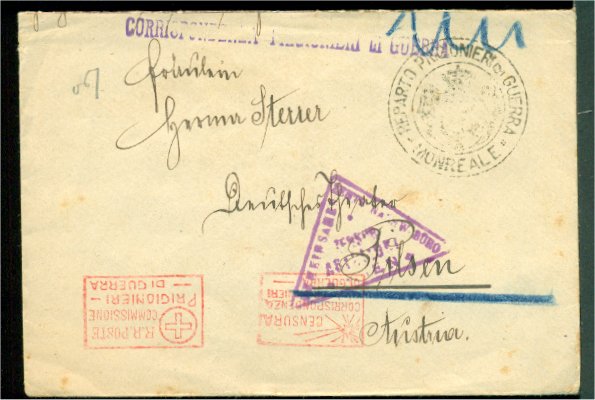 CORRISPONDENZA PRIGIONIERI DI GUERRA
REPARTO PRIGIONIERI DI GUERRA
MONREALE
Fräulein
Herma Sterrer
Deutsches Theater
Pilsen
Austria.
R.R. POSTE
COMMISSIONE
PRIGIONIERI
DI GUERRA
CENSURA
CORRISPONDENZA
PRIGIONIERI
DI GUERRA